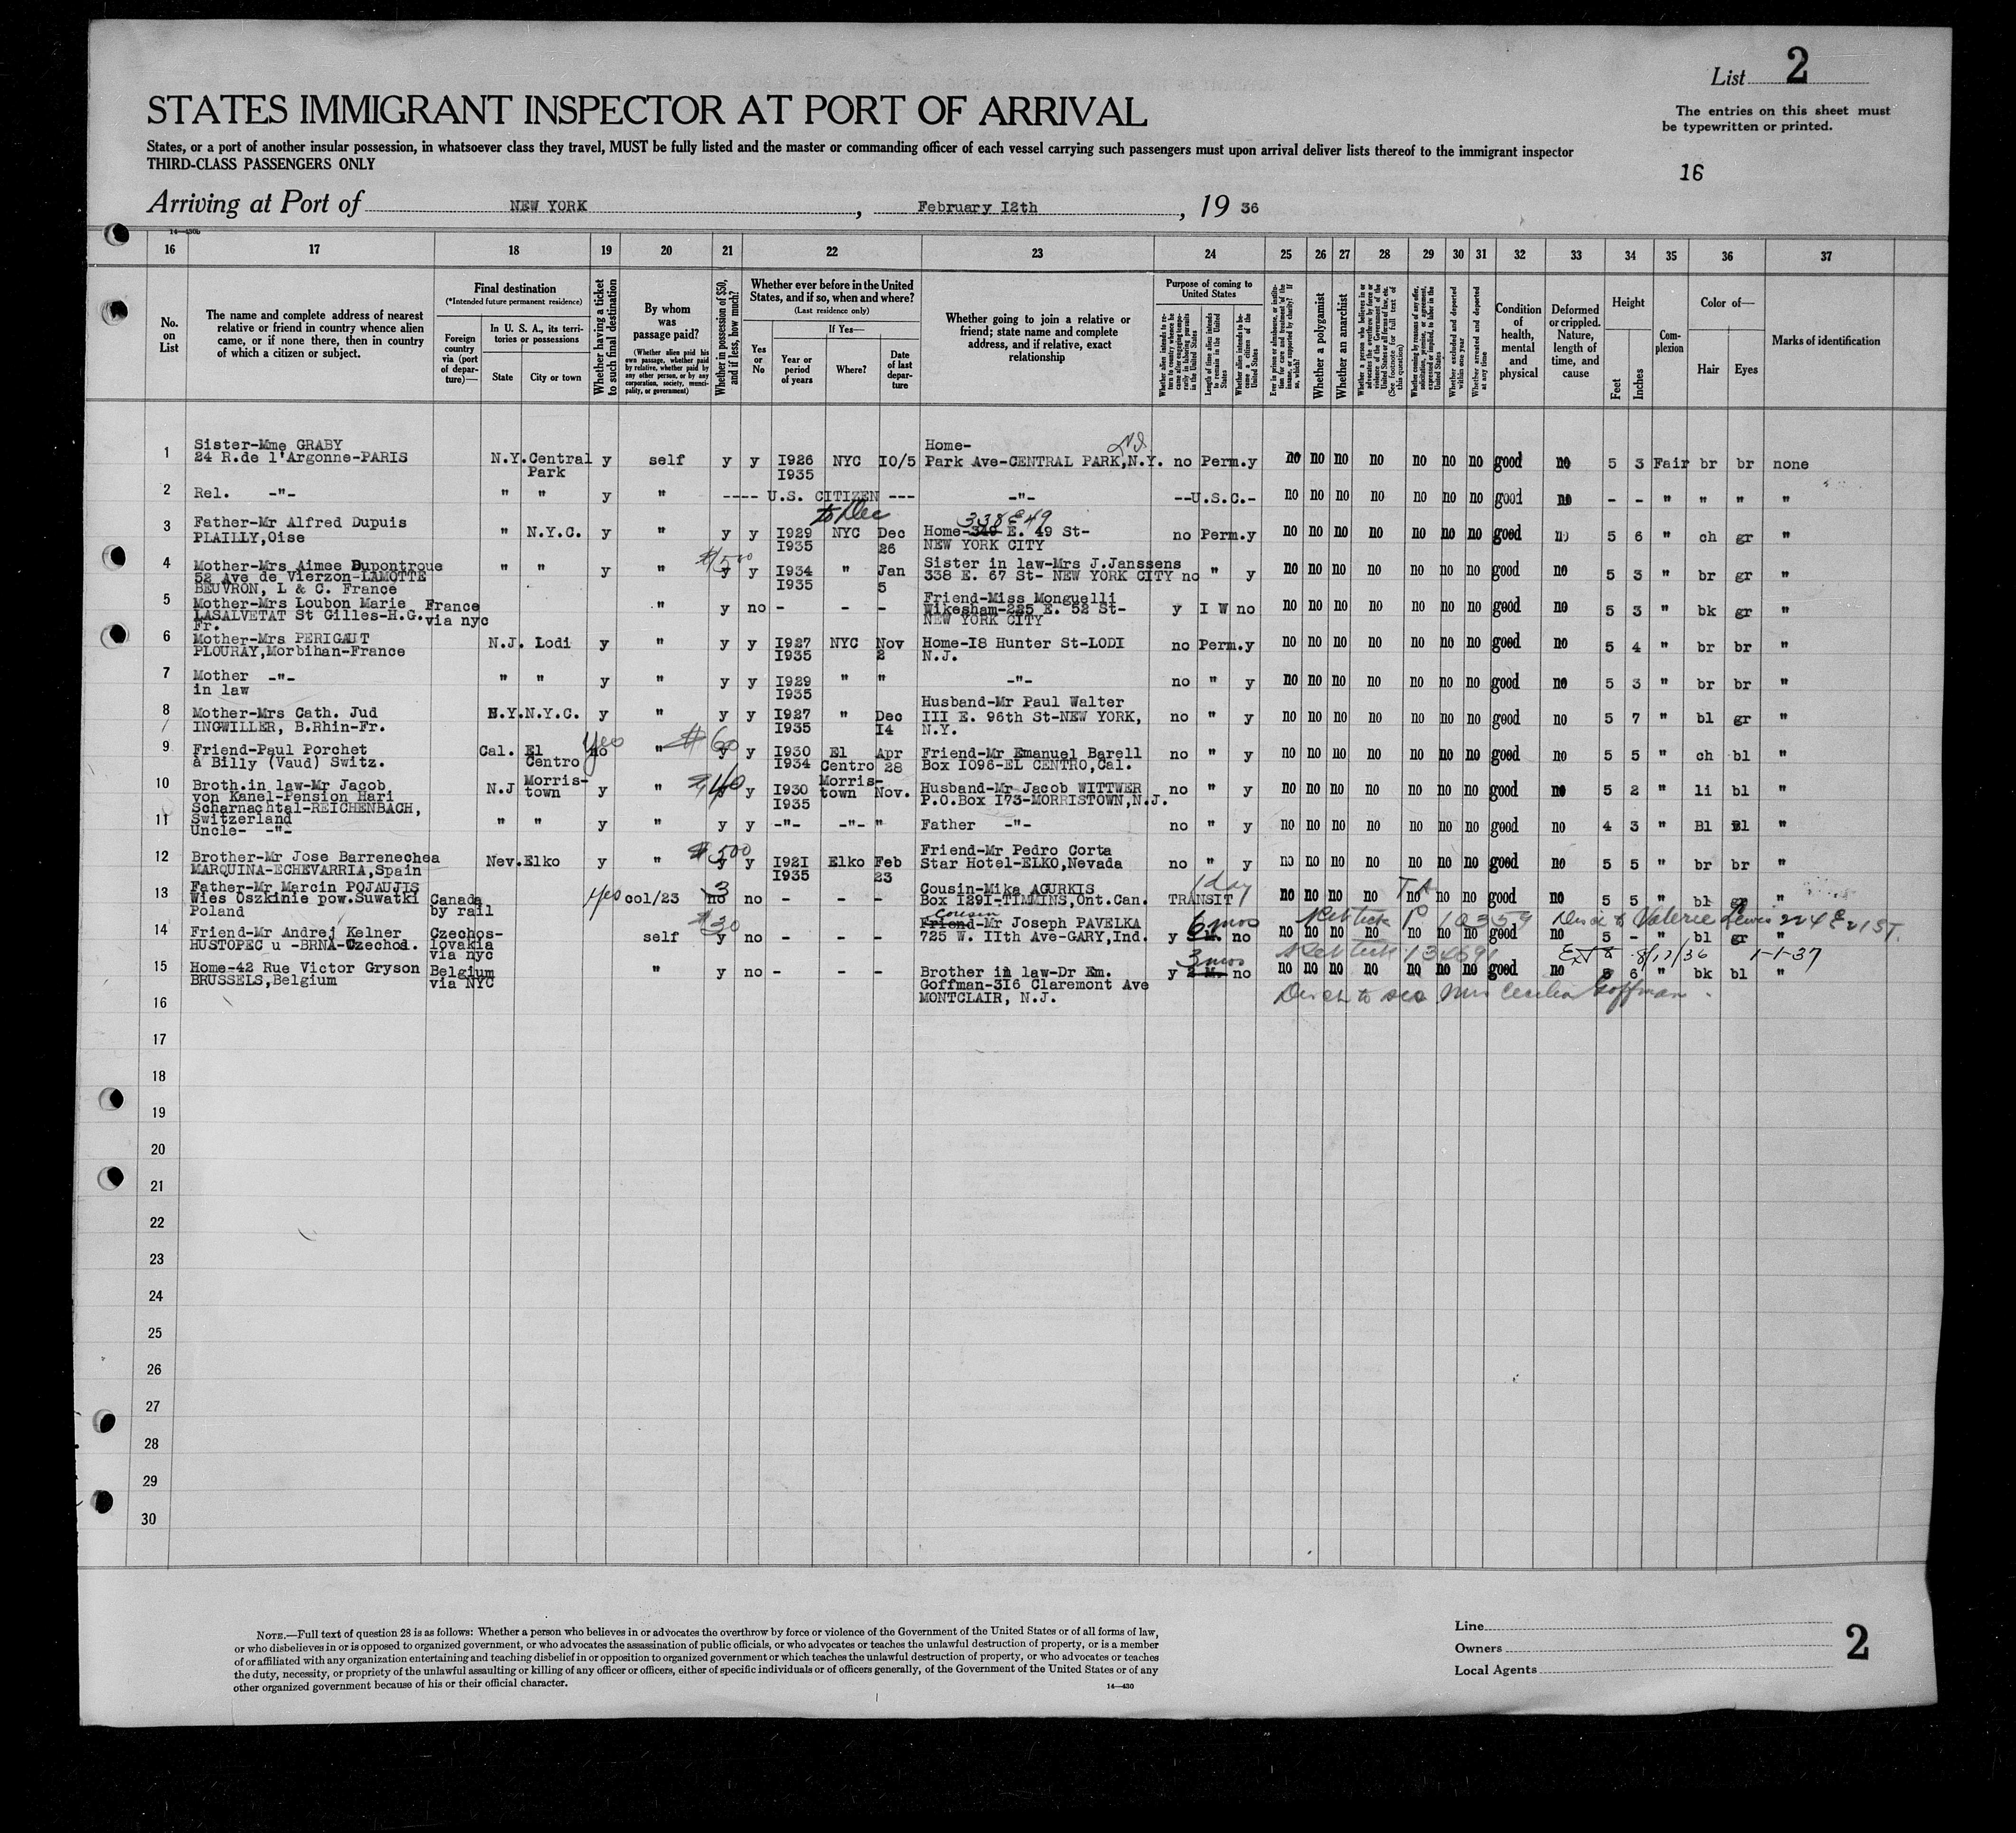 List 2
STATES IMMIGRANT INSPECTOR AT PORT OF ARRIVAL
The entries on this sheet must
be typewritten or printed.
States, or a port of another insular possession, in whatsoever class they travel, MUST be fully listed and the master or commanding officer of each vessel carrying such passengers must upon arrival deliver lists thereof to the immigrant inspector
THIRD-CLASS PASSENGERS ONLY
16
Arriving at Port of NEW YORK, February I2th, 19 36
14—430b
16 17 18 19 20 21 22 23 24 25 26 27 28 29 30 31 32 33 34 35 36 37
No. on List
The name and complete address of nearest relative or friend in country whence alien came, or if none there, then in country of which a citizen or subject.
Final destination
(*Intended future permanent residence)
Foreign country via (port of departure)—
In U. S. A., its territories or possessions
State
City or town
Whether having a ticket to such final destination
By whom was passage paid?
(Whether alien paid his own passage, whether paid by relative, whether paid by any other person, or by any corporation, society, municipality, or government)
Whether in possession of $50, and if less, how much?
Whether ever before in the United States, and if so, when and where?
(Last residence only)
Yes or No
If Yes—
Year or period of years
Where?
Date of last departure
Whether going to join a relative or friend; state name and complete address, and if relative, exact relationship
Purpose of coming to United States
Length of time alien intends to remain in the United States
Whether alien intends to become a citizen of the United States
Whether a polygamist
Whether an anarchist
Whether excluded and deported within one year
Whether arrested and deported at any time
Condition of health, mental and physical
Deformed or crippled. Nature, length of time, and cause
Height
Feet
Inches
Complexion
Color of—
Hair
Eyes
Marks of identification
1 Sister-Mme GRABY
24 R.de l'Argonne-PARIS N.Y. Central Park y self y y I926 I935 NYC I0/5 Home-
Park Ave-CENTRAL PARK,N.Y. no Perm. y no no no no no no no good no 5 3 Fair br br none
2 Rel. -"- " " y " ---- U.S. CITIZEN --- -"- --U.S.C.- no no no no no no no good no - - " " " "
to Dec
338 E 49
3 Father-Mr Alfred Dupuis
PLAILLY,Oise " N.Y.C. y " y y I929 I935 NYC Dec 26 Home-349 E. 49 St-
NEW YORK CITY no Perm. y no no no no no no no good no 5 6 " ch gr "
4 Mother-Mrs Aimee Dupontroue
52 Ave de Vierzon-LAMOTTE
BEUVRON, L & C. France " " y " $1500 y y I934 I935 " Jan 5 Sister in law-Mrs J.Janssens
338 E. 67 St- NEW YORK CITY no " y no no no no no no no good no 5 3 " br gr "
5 Mother-Mrs Loubon Marie
LASALVETAT St Gilles-H.G.
Fr. France via nyc " y no - - - Friend-Miss Monguelli
Wikesham-225 E. 52 St-
NEW YORK CITY y I W no no no no no no no no good no 5 3 " bk gr "
6 Mother-Mrs PERIGAUT
PLOURAY,Morbihan-France N.J. Lodi y " y y I927 I935 NYC Nov 2 Home-I8 Hunter St-LODI
N.J. no Perm. y no no no no no no no good no 5 4 " br br "
7 Mother -"-
in law " " y " y y I929 I935 " " -"- no " y no no no no no no no good no 5 3 " br br "
8 Mother-Mrs Cath. Jud
INGWILLER, B.Rhin-Fr. N.Y. N.Y.C. y " y y I927 I935 " Dec I4 Husband-Mr Paul Walter
III E. 96th St-NEW YORK,
N.Y. no " y no no no no no no no good no 5 7 " bl gr "
9 Friend-Paul Porchet
à Billy (Vaud) Switz. Cal. El Centro no yes " $60 y y I930 I934 El Centro Apr 28 Friend-Mr Emanuel Barell
Box I096-EL CENTRO,Cal. no " y no no no no no no no good no 5 5 " ch bl "
10 Broth.in law-Mr Jacob
von Kanel-Pension Hari
Scharnachtal-REICHENBACH,
Switzerland N.J Morristown y " $40 y y I930 I935 Morristown Nov. Husband-Mr Jacob WITTWER
P.O.Box I73-MORRISTOWN,N.J. no " y no no no no no no no good no 5 2 " li bl "
11 Uncle- -"- " " y " y y -"- -"- " Father -"- no " y no no no no no no no good no 4 3 " Bl Bl "
12 Brother-Mr Jose Barrenechea
MARQUINA-ECHEVARRIA,Spain Nev. Elko y " $500 y y I92I I935 Elko Feb 23 Friend-Mr Pedro Corta
Star Hotel-ELKO,Nevada no " y no no no no no no no good no 5 5 " br br "
13 Father-Mr Marcin POJAUJIS
Wies Oszkinie pow.Suwatki
Poland Canada by rail yes col/23 3 no no - - - Cousin-Mika AGURKIS
Box I29I-TIMMINS,Ont.Can. TRANSIT 1 day no no no no no no no good no 5 5 " bl gr "
14 Friend-Mr Andrej Kelner
HUSTOPEC u -BRNA-Czechos. Czechoslovakia via nyc self $30 y no - - - cousin
Friend-Mr Joseph PAVELKA
725 W. IIth Ave-GARY,Ind. y 6 mos no no no no no no no no good no 5 - " bl gr "
10359 Valerie Lewis 224 E 21 ST.
15 Home-42 Rue Victor Gryson
BRUSSELS,Belgium Belgium via NYC " y no - - - Brother in law-Dr Em.
Goffman-3I6 Claremont Ave
MONTCLAIR, N.J. y 3 mos 2 M. no no no no no no no no good no 5 6 " bk bl "
8/12/36 1-1-37
to sea Mrs Cecilia Goffman
16
17
18
19
20
21
22
23
24
25
26
27
28
29
30
NOTE.—Full text of question 28 is as follows: Whether a person who believes in or advocates the overthrow by force or violence of the Government of the United States or of all forms of law,
or who disbelieves in or is opposed to organized government, or who advocates the assassination of public officials, or who advocates or teaches the unlawful destruction of property, or is a member
of or affiliated with any organization entertaining and teaching disbelief in or opposition to organized government or which teaches the unlawful destruction of property, or who advocates or teaches
the duty, necessity, or propriety of the unlawful assaulting or killing of any officer or officers, either of specific individuals or of officers generally, of the Government of the United States or of any
other organized government because of his or their official character.
14—430
Line
Owners
Local Agents
2